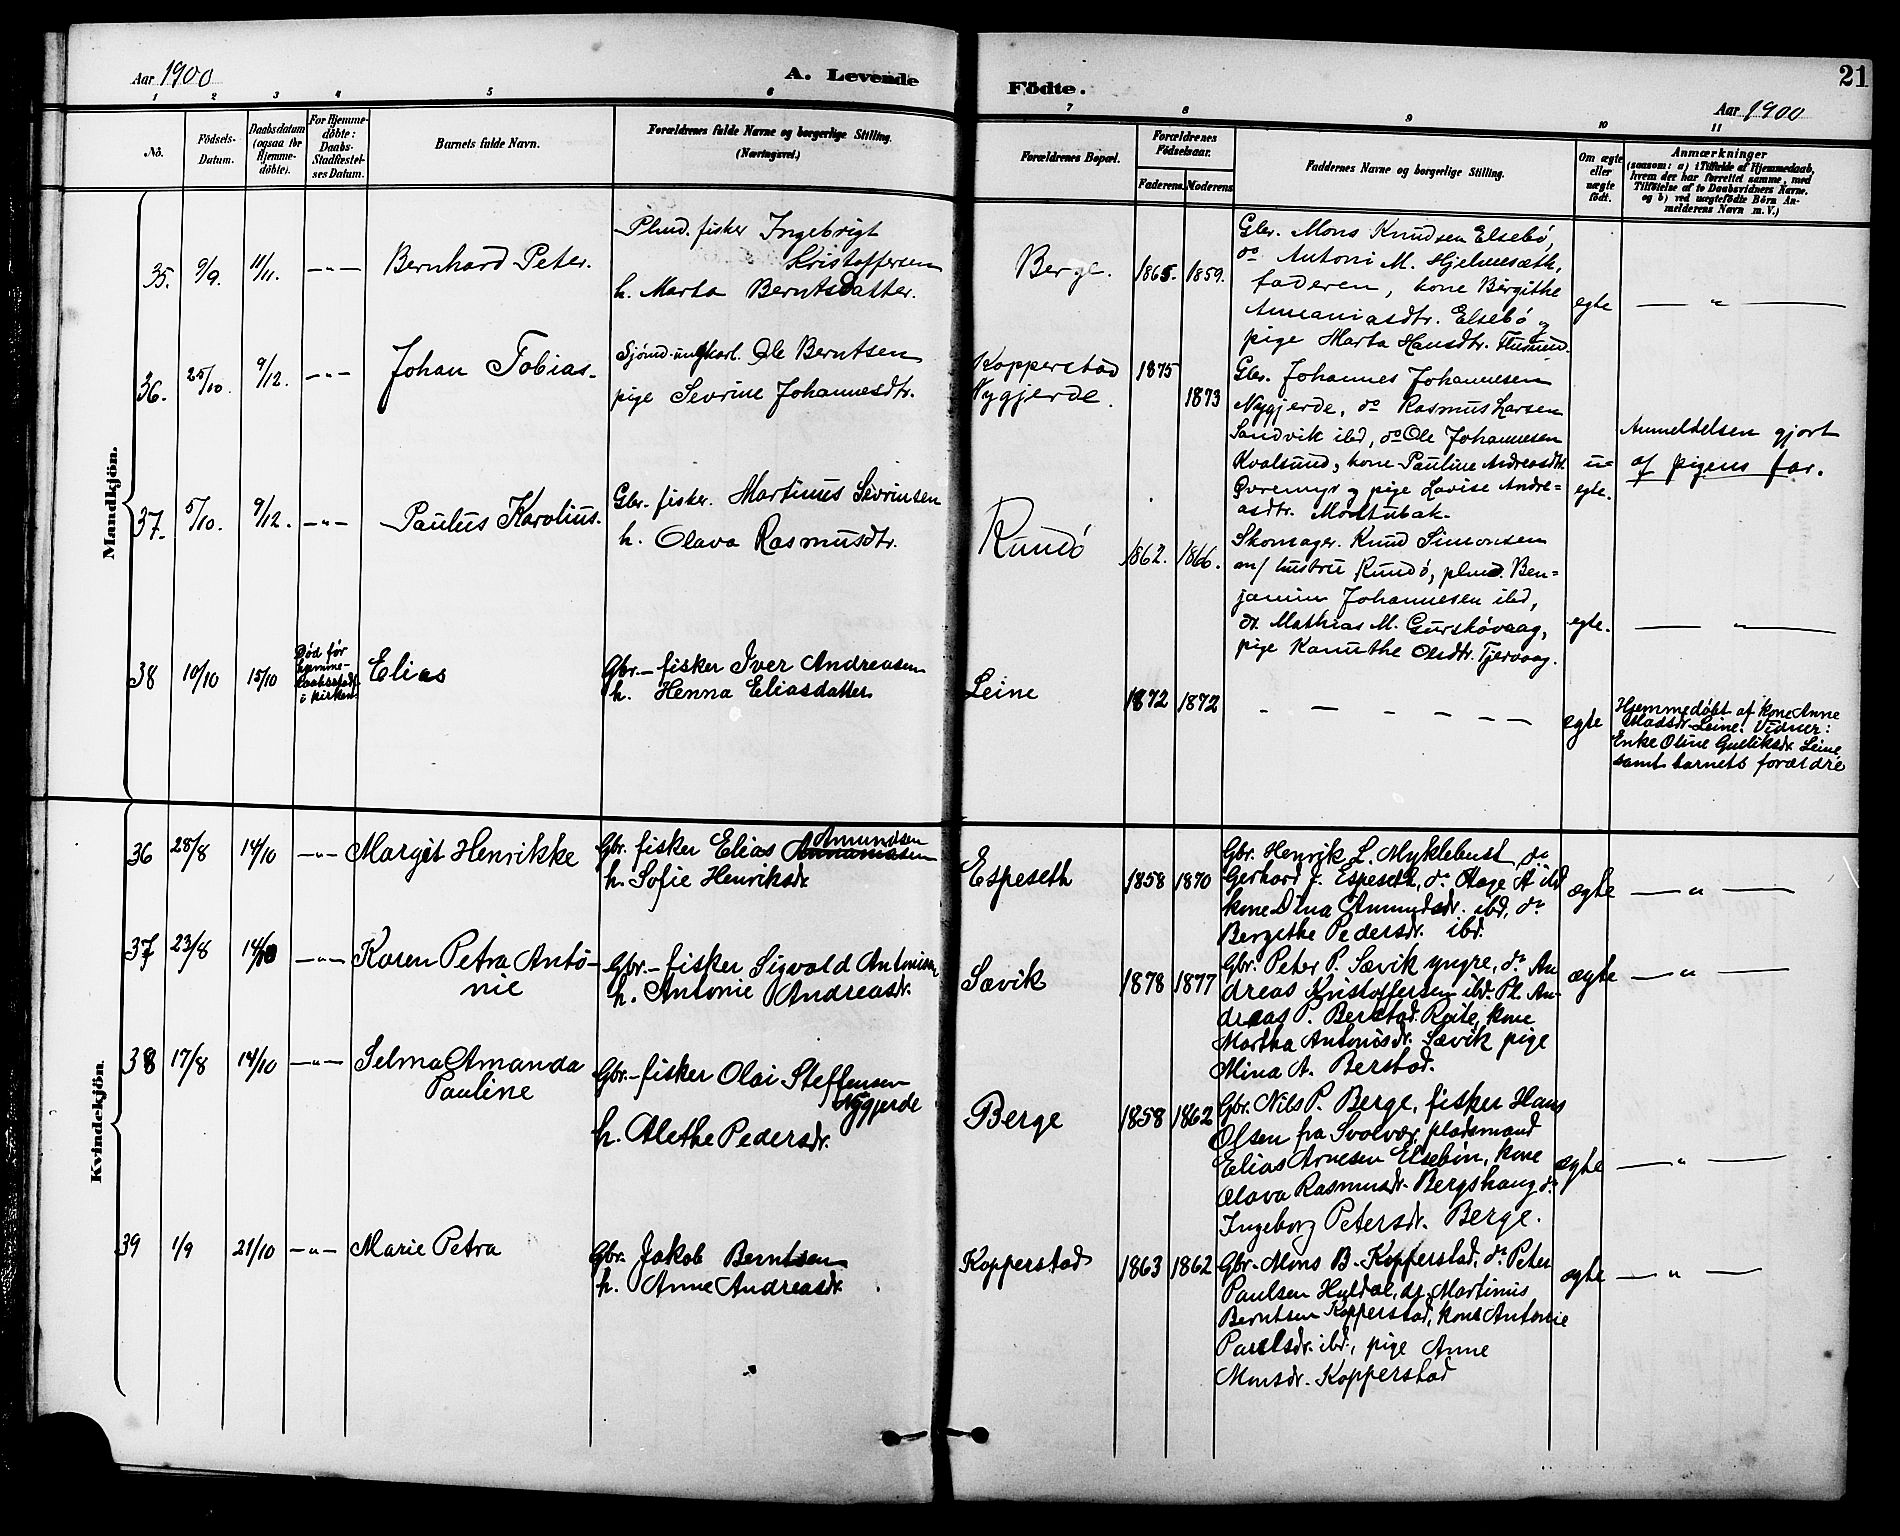 Aar 1900
A. Levende
Födte.
21
Aar 1900
1 2 3 4 5 6 7 8 9 10 11
No.
Födsels-
Datum.
Daabsdatum
(ogsaa for
Hjemme-
döbte).
For Hjemme-
döbte:
Daabs-
Stadfestel-
ses Datum.
Barnets fulde Navn.
Forældrenes fulde Navne og borgerlige Stilling.
(Næringsvei.)
Forældrenes Bopæl.
Forældrenes
Födselsaar.
Faderens.
Moderens
Faddernes Navne og borgerlige Stilling.
Om ægte
eller
uægte
födt.
Anmærkninger
(saasom: a) i Tilfælde af Hjemmedaab,
hvem der har forrettet samme, med
Tilföielse af to Daabsvidners Navne.
og b) ved uægtefödte Börn An-
melderens Navn m. V.)
Mandkjön.
35. 9/9. 11/11. —"— Bernhard Peter.
Plmd. fisker Ingebrigt
Kristoffersen
h. Marta Berntsdatter.
Berge. 1865. 1859.
Gbr. Mons Knudsen Elsebö,
do Antoni M. Hjelmesæth,
faderen, kone Bergithe
Annaniasdtr. Elsebö og
pige Marta Hansdtr.
egte — " —
36. 25/10. 9/12. —"— Johan Tobias.
Sjömd. ungkarl. Ole Berntsen
pige Sevrine Johannesdtr.
Kopperstad 1875
Nygjerde. 1873
Gbr. Johannes Johannesen
Nygjerde, do Rasmus Larsen
Sandvik ibd, do Ole Johannesen
Kvalsund, kone Pauline Andreasdtr.
Øvremyr og pige Lovise Andre-
asdtr. Moltubak.
u-
egte.
Anmeldelsen gjort
af pigens far.
37. 5/10. 9/12. —"— Paulus Karolius.
Gbr. fisker. Martinus Sevrinsen
h. Olava Rasmusdtr.
Rundö 1862. 1866.
Skomager. Knud Simonsen
m/ hustru Rundö, plmd. Ben-
jamin Johannesen ibd,
do. Mathias M. Gurskövaag,
pige Kanuthe Olsdtr. Tjervaag.
egte. — " —
38 10/10 15/10
Död för
hjemme-
daabsstadf.
i kirken
Elias
Gbr.- fisker Iver Andreasen
h. Henna Eliasdatter
Leine 1872 1872 - — - — - - — ægte
Hjemmedöbt af kone Anne
Madsdr. Leine. Vidner:
Enke Oline Gulliksdr. Leine
samt barnets forældre
Kvindekjön.
36 28/8 14/10 —"— Margit Henrikke
Gbr. fisker Elias Annaniasen
Amundsen
h. Sofie Henriksdr.
Espeseth 1858 1870
Gbr. Henrik L. Myklebust do
Gerhard J. Espeseth, do Hage A ibd
kone Dina Amundsdr. ibd, do
Bergithe Pedersdr. ibd.
ægte — " —
37 23/8 14/10 —"— Karen Petra Antö-
nie
Gbr.- fisker Sigvald Antonisen
h. Antonie Andreasdr.
Sævik 1878 1877
Gbr. Peter P. Sævik yngre, do An-
dreas Kristoffersen ibd. Pl. An-
dreas P. Berstad. Reite, kone
Martha Antonisdr. Sævik pige
Mina A. Berstad.
ægte — " —
38 17/8 14/10 —"— Selma Amanda
Pauline
Gbr.- fisker Olai Steffensen
Nygjerde
h. Alethe Pedersdr.
Berge 1858 1862
Gbr. Nils P. Berge, fisker Hans
Olsen fra Svolvær, pladsmand
Elias Arnesen Elsebön, kone
Olava Rasmusdr. Bergshaug do
Ingeborg Petersdr. Berge.
ægte — " —
39 1/9 21/10 —"— Marie Petra
Gbr. Jakob Berntsen
h. Anne Andreasdr.
Kopperstad 1863 1862
Gbr. Mons B. Kopperstad, do Peter
Paulsen Huldal, do Martinus
Berntsen Kopperstad, kone Antonie
Paulsdr. ibd., pige Anne
Monsdr. Kopperstad
ægte — " —